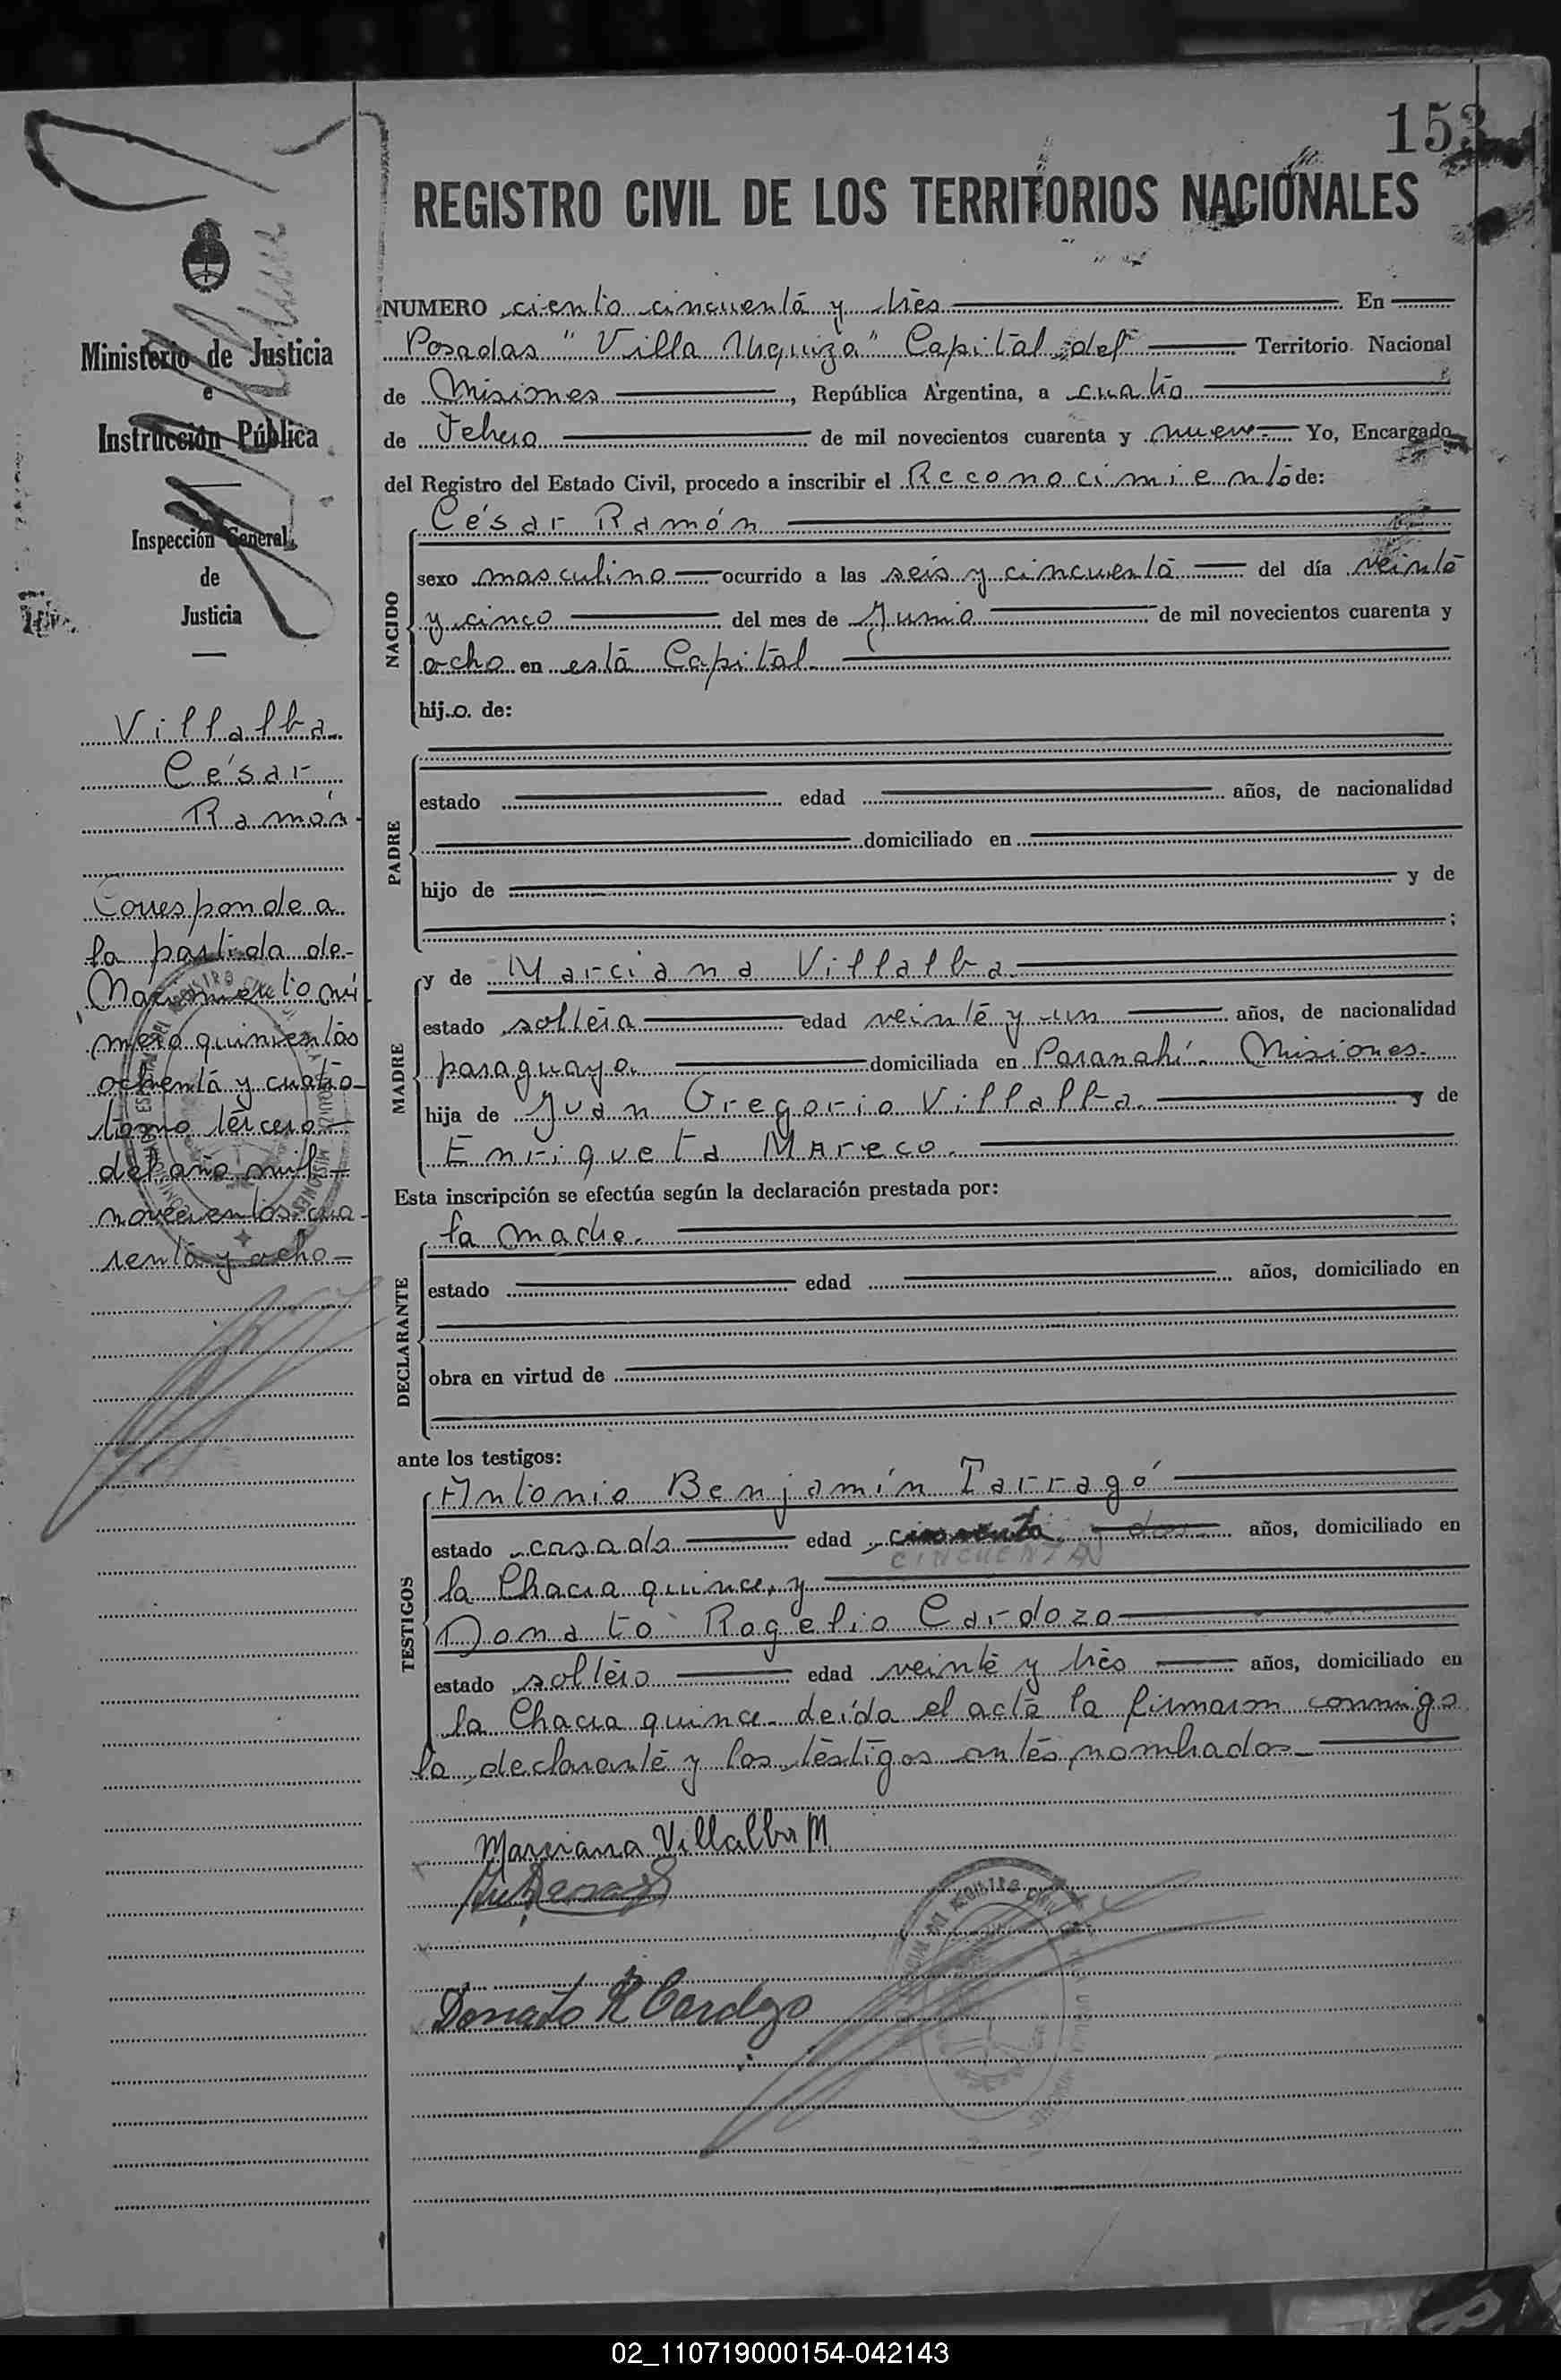 153
REGISTRO CIVIL DE LOS TERRITORIOS NACIONALES
Ministerio de Justicia
e
Instrucción Pública
Inspección General
de
Justicia
Villalba
César
Ramón
Corresponde a
la partida de
Nacimiento nú
mero quinientos
ochenta y cuatro
tomo tercero
del año mil
novecientos cua
renta y ocho
NUMERO ciento cincuenta y trés En
Posadas "Villa Urquiza" Capital del Territorio Nacional
de Misiones, República Argentina, a cuatro
de Febrero de mil novecientos cuarenta y nueve Yo, Encargado
del Registro del Estado Civil, procedo a inscribir el Reconocimiento de:
NACIDO
César Ramón
sexo masculino ocurrido a las seis y cincuenta del día veinte
y cinco del mes de Junio de mil novecientos cuarenta y
ocho en esta Capital
hijo de:
PADRE
estado edad años, de nacionalidad
domiciliado en
hijo de y de
;
MADRE
y de Marciana Villalba
estado soltera edad veinte y un años, de nacionalidad
paraguaya domiciliada en Paranahí. Misiones.
hija de Juan Gregorio Villalba. y de
Enriqueta Mareco.
Esta inscripción se efectúa según la declaración prestada por:
DECLARANTE
la madre.
estado edad años, domiciliado en
obra en virtud de
ante los testigos:
TESTIGOS
Antonio Benjamín Tarragó
estado casado edad cincuenta años, domiciliado en
CINCUENTA
la Chacra quince, y
Donato Rogelio Cardozo
estado soltero edad veinte y trés años, domiciliado en
la Chacra quince. Leída el acta la firmaron conmigo
la declarante y los testigos antes nombrados
Marciana Villalba M
Donato R Cardozo
02_110719000154-042143